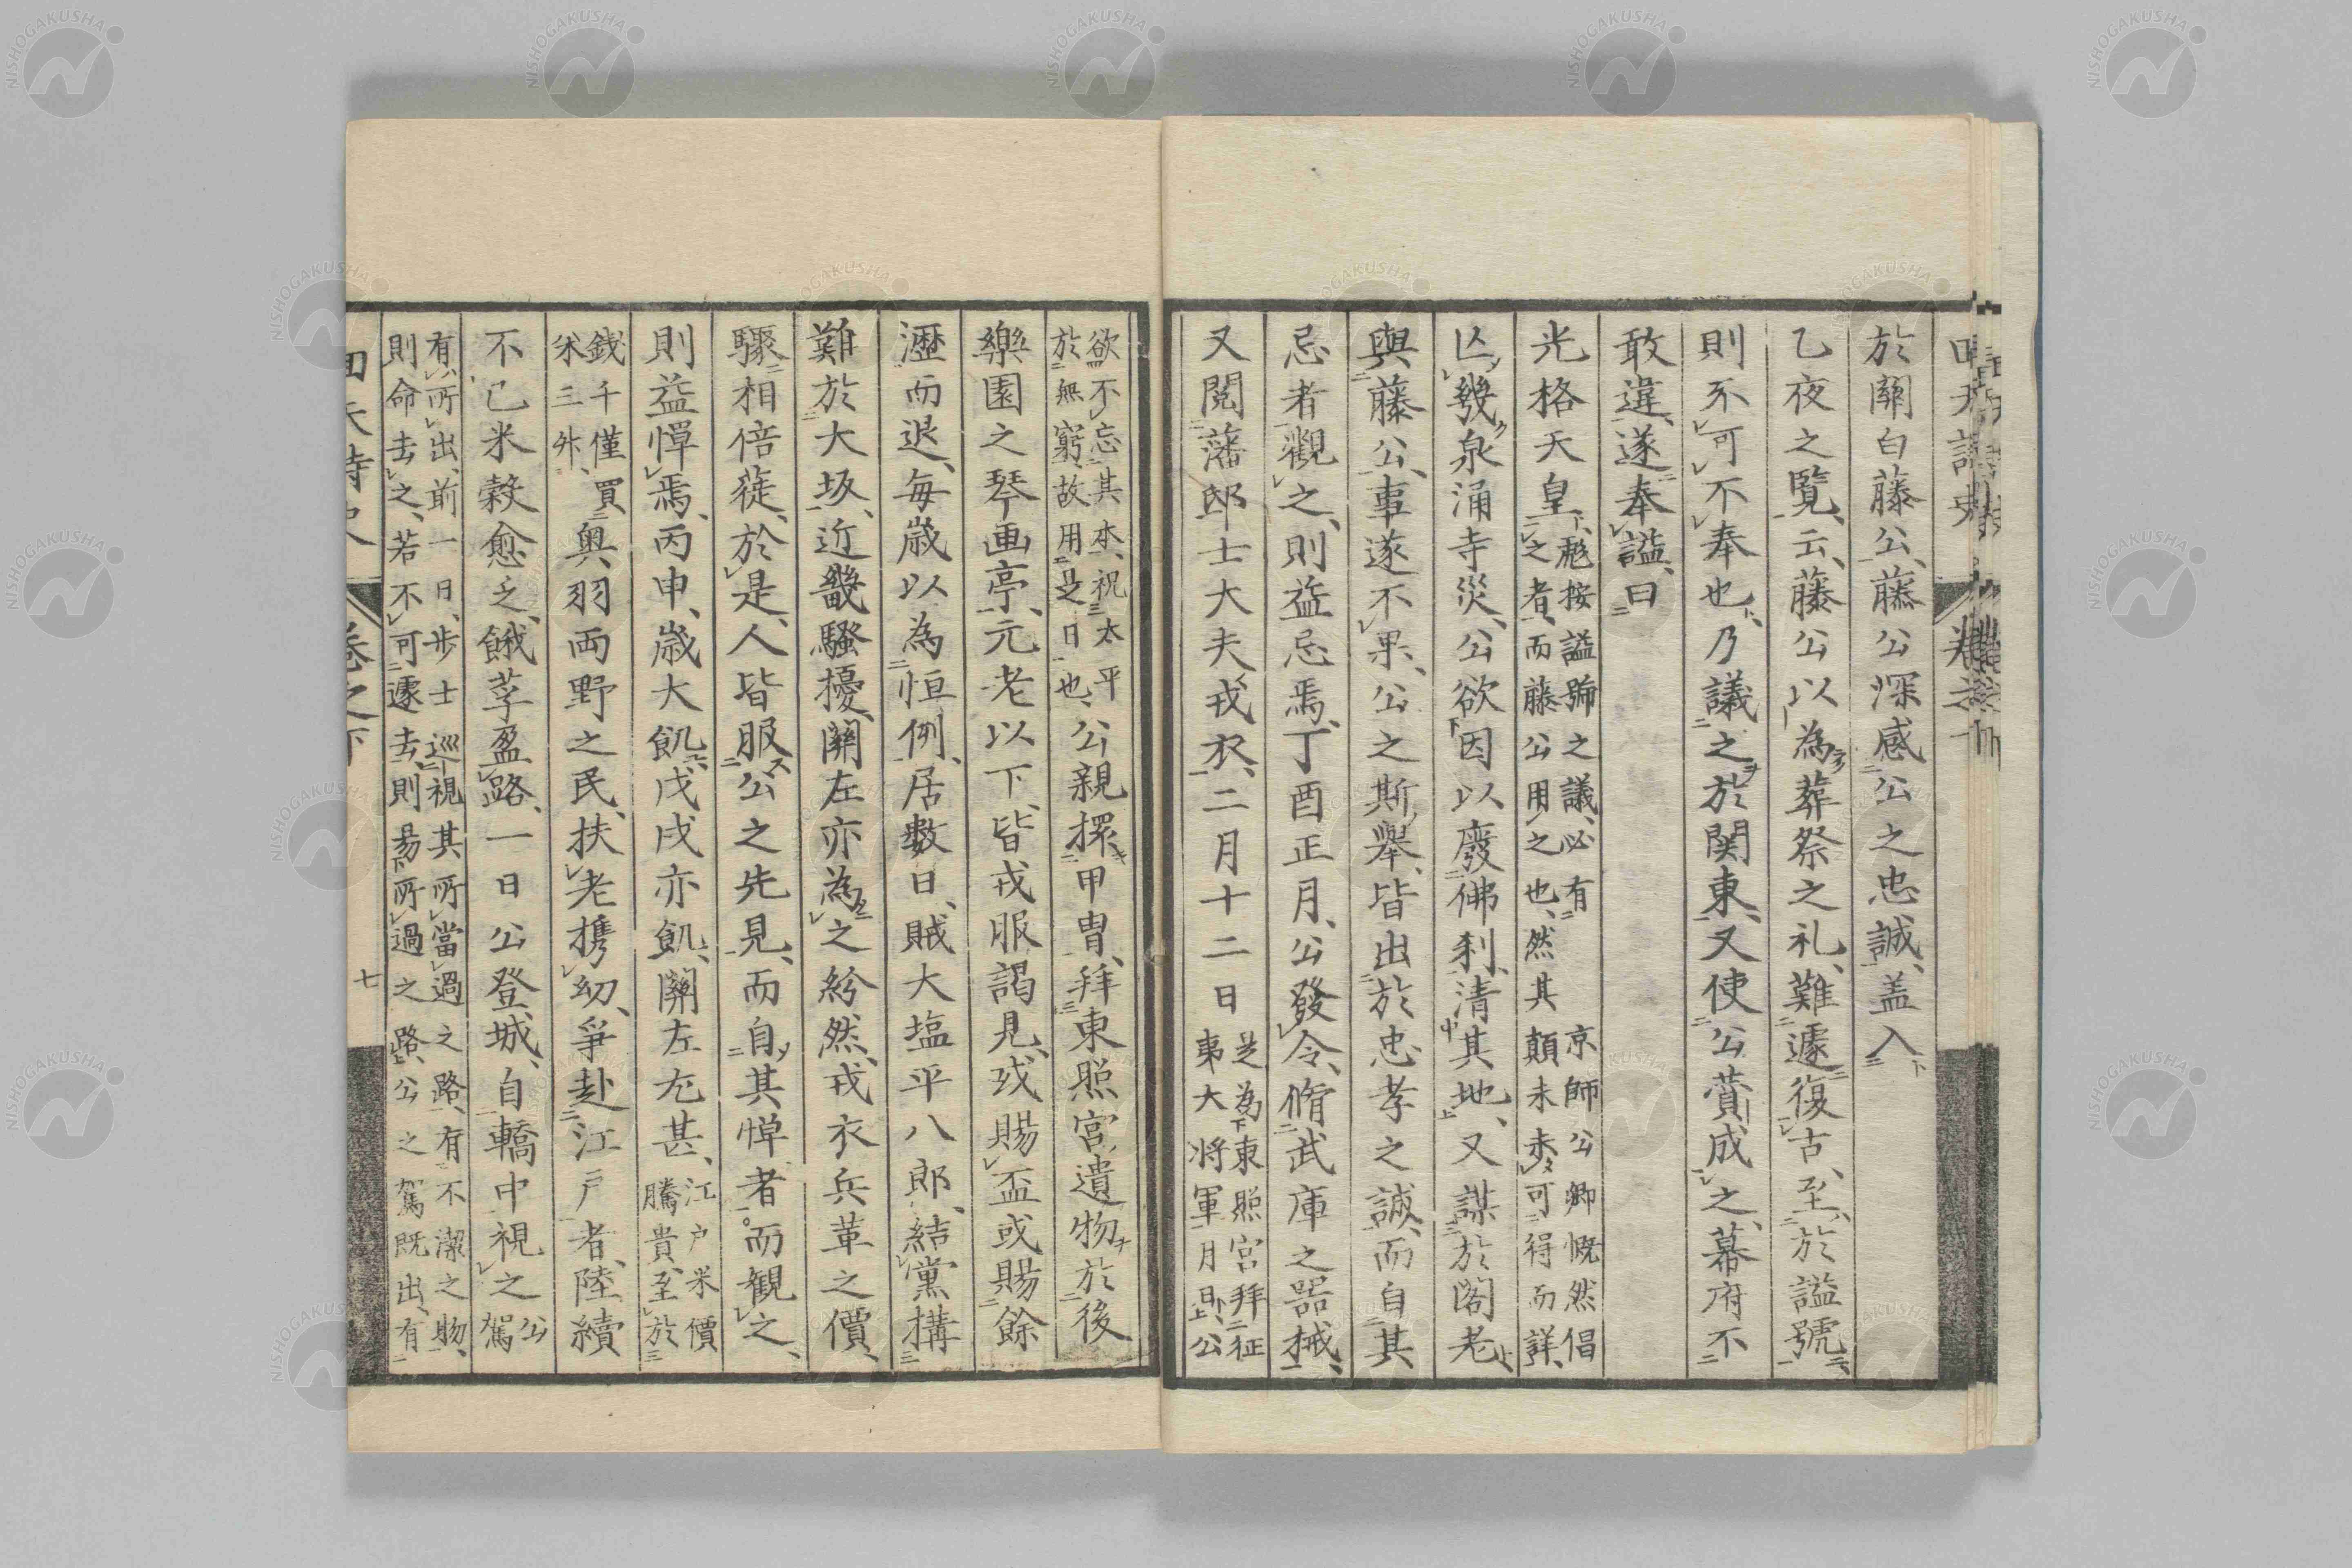 於關白藤公、藤公深感公之忠誠、盖入
乙夜之覧、云、藤公以為葬祭之礼、難遽復古、至於謚號
則不可不奉也、乃議之於関東、又使公賛成之、幕府不
敢違、遂奉謚、曰
光格天皇、彪按謚號之議、必有
之者、而藤公用之也、然其
京師公卿慨然倡
顛末未可得而詳、
亡幾泉涌寺災、公欲因以廢佛刹、清其地、又謀於閣老
與藤公、事遂不果、公之斯舉、皆出於忠孝之誠、而自其
忌者觀之、則益忌焉、丁酉正月、公發令、脩武庫之器械、
又閲藩邸士大夫戎衣、二月十二日
是為東照宮拜征
東大将軍月日、公
欲不忘其本、祝太平
於無窮、故用是日也、
公親擐甲冑、拜東照宮遺物於後
樂園之琴画亭、元老以下、皆戎服謁見、或賜盃或賜餘
瀝而退、每歳以為恒例、居數日、賊大塩平八郎、結黨搆
難於大坂、近畿騷擾、關左亦為之紛然、戎衣兵革之價、
驟相倍蓰、於是、人皆服公之先見、而自其憚者而観之、
則益憚焉、丙申、歳大飢、戊戌亦飢、關左尤甚、
江戸米價
騰貴、至於
錢千僅買
米三升、
奥羽両野之民、扶老携幼、爭赴江戸者、陸續
不已、米穀愈乏、餓莩盈路、一日公登城、自轎中視之
公
駕
有所出、前一日、歩士巡視其所當過之路、有不潔之物、
則命去之、若不可遽去、則易所過之路、公之駕既出、有
卷之下
七
NISHOGAKUSHA